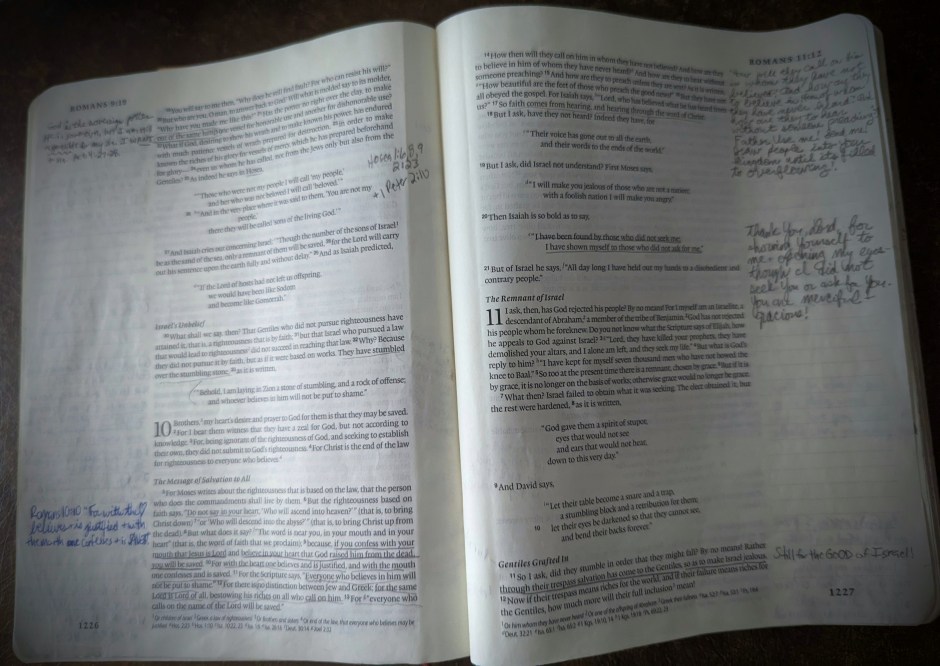 ROMANS 9:19
19You will say to me then, "Why does he still find fault? For who can resist his will?"
20But who are you, O man, to answer back to God? Will what is molded say to its molder,
"Why have you made me like this?" 21Has the potter no right over the clay, to make
out of the same lump one vessel for honorable use and another for dishonorable use?
22What if God, desiring to show his wrath and to make known his power, has endured
with much patience vessels of wrath prepared for destruction, 23in order to make
known the riches of his glory for vessels of mercy, which he has prepared beforehand
for glory— 24even us whom he has called, not from the Jews only but also from the
Gentiles? 25As indeed he says in Hosea,
Hosea 1:6,8,9
2:23
+ 1 Peter 2:10
"Those who were not my people I will call 'my people,'
and her who was not beloved I will call 'beloved.'"
26 "And in the very place where it was said to them, 'You are not my
people,'
there they will be called 'sons of the living God.'"
27And Isaiah cries out concerning Israel: "Though the number of the sons of Israel
be as the sand of the sea, only a remnant of them will be saved, 28for the Lord will carry
out his sentence upon the earth fully and without delay." 29And as Isaiah predicted,
"If the Lord of hosts had not left us offspring,
we would have been like Sodom
and become like Gomorrah."
Israel's Unbelief
30What shall we say, then? That Gentiles who did not pursue righteousness have
attained it, that is, a righteousness that is by faith; 31but that Israel who pursued a law
that would lead to righteousness did not succeed in reaching that law. 32Why? Because
they did not pursue it by faith, but as if it were based on works. They have stumbled
over the stumbling stone, 33as it is written,
"Behold, I am laying in Zion a stone of stumbling, and a rock of offense;
and whoever believes in him will not be put to shame."
10 Brothers, my heart's desire and prayer to God for them is that they may be saved.
2For I bear them witness that they have a zeal for God, but not according to
knowledge. 3For, being ignorant of the righteousness of God, and seeking to establish
their own, they did not submit to God's righteousness. 4For Christ is the end of the law
for righteousness to everyone who believes.
The Message of Salvation to All
5For Moses writes about the righteousness that is based on the law, that the person
who does the commandments shall live by them. 6But the righteousness based on
faith says, "Do not say in your heart, 'Who will ascend into heaven?'" (that is, to bring
Christ down) 7"or 'Who will descend into the abyss?'" (that is, to bring Christ up from
the dead). 8But what does it say? "The word is near you, in your mouth and in your
heart" (that is, the word of faith that we proclaim); 9because, if you confess with your
mouth that Jesus is Lord and believe in your heart that God raised him from the dead,
you will be saved. 10For with the heart one believes and is justified, and with the mouth
one confesses and is saved. 11For the Scripture says, "Everyone who believes in him will
not be put to shame." 12For there is no distinction between Jew and Greek; for the same
Lord is Lord of all, bestowing his riches on all who call on him. 13For "everyone who
calls on the name of the Lord will be saved."
1226
ROMANS 11:12
14How then will they call on him in whom they have not believed? And how are they
to believe in him of whom they have never heard? And how are they to hear without
someone preaching? 15And how are they to preach unless they are sent? As it is written,
"How beautiful are the feet of those who preach the good news!" 16But they have not
all obeyed the gospel. For Isaiah says, "Lord, who has believed what he has heard from
us?" 17So faith comes from hearing, and hearing through the word of Christ.
18But I ask, have they not heard? Indeed they have, for
"Their voice has gone out to all the earth,
and their words to the ends of the world."
19But I ask, did Israel not understand? First Moses says,
"I will make you jealous of those who are not a nation;
with a foolish nation I will make you angry."
20Then Isaiah is so bold as to say,
"I have been found by those who did not seek me;
I have shown myself to those who did not ask for me."
Thank You, Lord, for
showing Yourself to
me - opening my eyes -
though I did not
seek You or ask for You.
You are merciful +
gracious!
21But of Israel he says, "All day long I have held out my hands to a disobedient and
contrary people."
The Remnant of Israel
11 I ask, then, has God rejected his people? By no means! For I myself am an Israelite, a
descendant of Abraham, a member of the tribe of Benjamin. 2God has not rejected
his people whom he foreknew. Do you not know what the Scripture says of Elijah, how
he appeals to God against Israel? 3"Lord, they have killed your prophets, they have
demolished your altars, and I alone am left, and they seek my life." 4But what is God's
reply to him? "I have kept for myself seven thousand men who have not bowed the
knee to Baal." 5So too at the present time there is a remnant, chosen by grace. 6But if it is
by grace, it is no longer on the basis of works; otherwise grace would no longer be grace.
7What then? Israel failed to obtain what it was seeking. The elect obtained it, but
the rest were hardened, 8as it is written,
"God gave them a spirit of stupor,
eyes that would not see
and ears that would not hear,
down to this very day."
9And David says,
"Let their table become a snare and a trap,
a stumbling block and a retribution for them;
10 let their eyes be darkened so that they cannot see,
and bend their backs forever."
Gentiles Grafted In
11So I ask, did they stumble in order that they might fall? By no means! Rather
through their trespass salvation has come to the Gentiles, so as to make Israel jealous.
12Now if their trespass means riches for the world, and if their failure means riches for
the Gentiles, how much more will their full inclusion mean!
Still for the GOOD of Israel!
1227